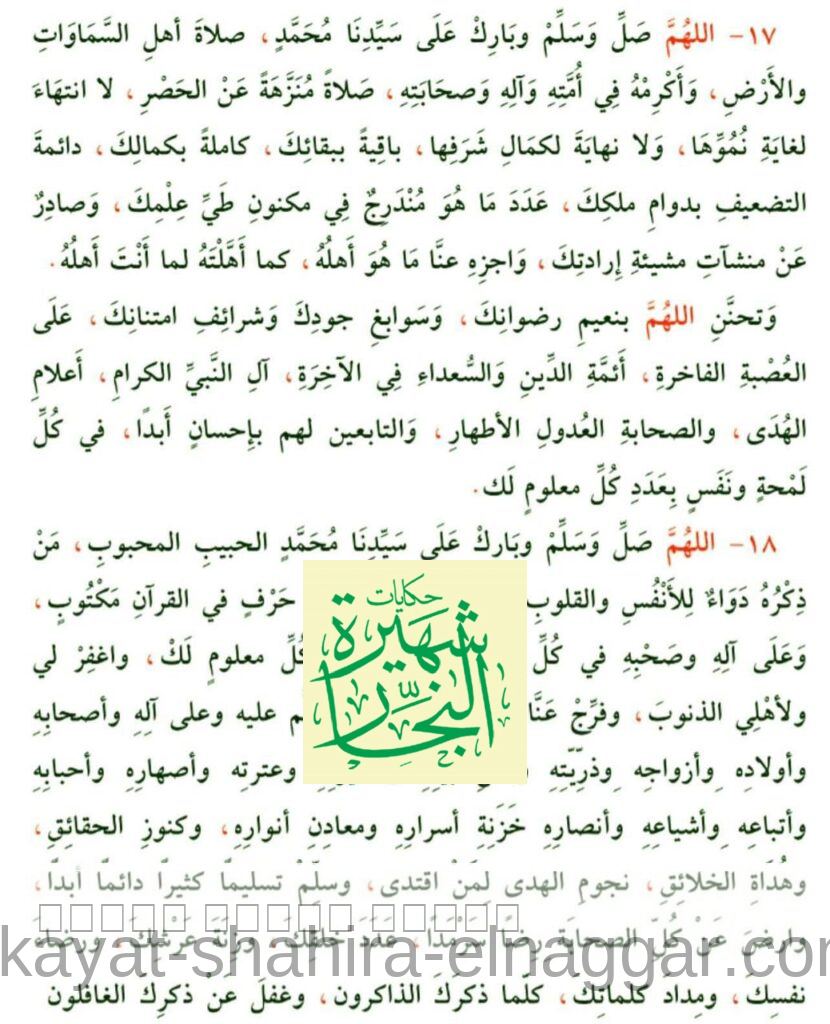 ١٧- اللهُمَّ صَلِّ وَسَلِّمْ وبَارِكْ عَلَى سَيِّدِنَا مُحَمَّدٍ، صلاةَ أهلِ السَّمَاوَاتِ
والأَرْضِ، وَأَكْرِمْهُ فِي أُمَّتِهِ وَآلِهِ وَصحَابَتِهِ، صَلاةً مُنَزَّهَةً عَنْ الحَصْرِ، لا انتهَاءَ
لغايَةِ نُمُوِّهَا، وَلا نهايَةَ لكمَالِ شَرَفِها، باقِيةً ببقائِكَ، كاملةً بكمالِكَ، دائمةَ
التضعيفِ بدوامِ ملكِكَ، عَدَدَ مَا هُوَ مُنْدَرِجٌ فِي مكنونِ طَيِّ عِلْمِكَ، وَصادِرٌ
عَنْ منشآتِ مشيئةِ إرادتِكَ، وَاجزِهِ عنَّا مَا هُوَ أَهلُهُ، كما أَهَّلْتَهُ لما أَنْتَ أَهلُهُ.
وَتحنَّنِ اللهُمَّ بنعيمِ رضوانِكَ، وَسَوابغِ جودِكَ وَشرائِفِ امتنانِكَ، عَلَى
العُصْبةِ الفاخرةِ، أَئمَّةِ الدِّينِ وَالسُّعداءِ فِي الآخِرَةِ، آلِ النَّبيِّ الكرامِ، أَعلامِ
الهُدَى، والصحابةِ العُدولِ الأطهارِ، وَالتابعين لهم بإِحسانٍ أَبدًا، في كُلِّ
لَمْحةٍ ونَفَسٍ بِعَدَدِ كُلِّ معلومٍ لَك.
١٨- اللهُمَّ صَلِّ وَسَلِّمْ وبَارِكْ عَلَى سَيِّدِنَا مُحَمَّدٍ الحبيبِ المحبوبِ، مَنْ
ذِكْرُهُ دَوَاءٌ لِلأَنْفُسِ والقلوبِ حَرْفٍ في القرآنِ مَكْتُوبٍ،
وَعَلَى آلِهِ وصَحْبِهِ في كُلِّ كُلِّ معلومٍ لَكْ، واغفِرْ لي
ولأهْلِي الذنوبَ، وفرِّجْ عَنَّا عليه وعلى آلِهِ وأصحابِهِ
وأولادِه وأزواجِه وذرِّيّتِهِ وعترتِه وأصهارِهِ وأحبابِهِ
وأتباعِه وأشياعِهِ وأنصارِهِ خَزَنةِ أسرارِهِ ومعادِنِ أنوارِهِ، وكنوزِ الحقائقِ،
وهُدَاةِ الخلائِقِ، نجومِ الهدى لِمَنْ اقتدى، وسلِّمْ تسليمًا كثيرًا دائمًا أبدًا،
وارضَ عَنْ كُلِّ الصحابَةِ رِضًا سَرْمَدًا، عَدَدَ خلقِكَ، وزِنَةَ عَرْشِكَ، ورضاءَ
نفسِكَ، ومِدادَ كلماتِكَ، كلَّما ذكرَكَ الذاكرون، وغفلَ عَنْ ذكرِكَ الغافلون
حكايات
شهيرة
النجّار
kayat-shahira-elnaggar.co